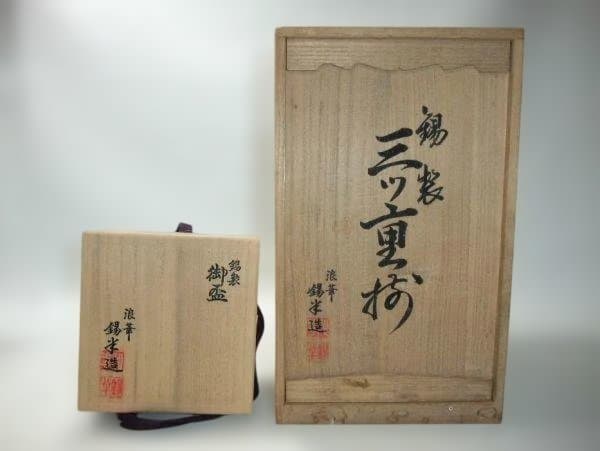 錫製
三ツ重揃
浪華
錫半造
錫製
御盃
浪華
錫半造